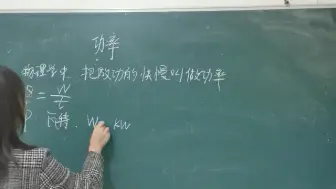 功率
物理学中，把做功的快慢叫做功率
P = W/t
P 瓦特. W. kW